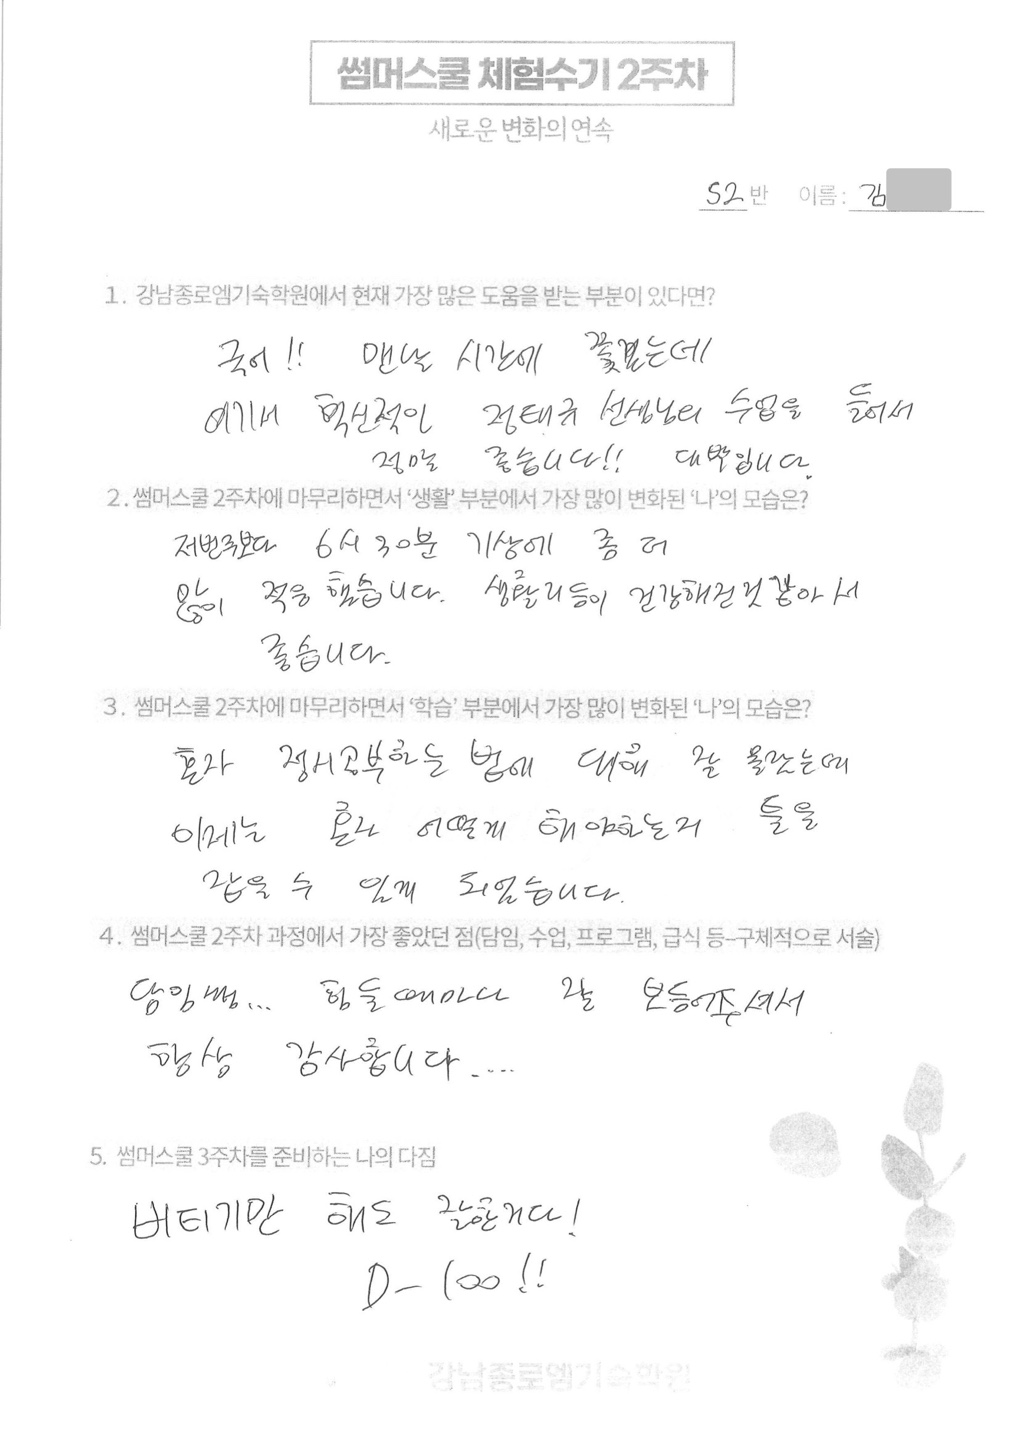 썸머스쿨 체험수기 2주차
새로운 변화의 연속
S2 반 이름 : 김
1. 강남종로엠기숙학원에서 현재 가장 많은 도움을 받는 부분이 있다면?
국어!! 맨날 시간에 쫓겼는데
여기서 혁신적인 정태규 선생님의 수업을 들어서
정말 좋습니다!! 대박입니다.
2. 썸머스쿨 2주차에 마무리하면서 '생활' 부분에서 가장 많이 변화된 '나'의 모습은?
저번주보다 6시 30분 기상에 좀 더
많이 적응했습니다. 생활리듬이 건강해진것같아서
좋습니다.
3. 썸머스쿨 2주차에 마무리하면서 '학습' 부분에서 가장 많이 변화된 '나'의 모습은?
혼자 정시공부하는 법에 대해 잘 몰랐는데
이제는 혼자 어떻게 해야하는지 틀을
잡을 수 있게 되었습니다.
4. 썸머스쿨 2주차 과정에서 가장 좋았던 점(담임, 수업, 프로그램, 급식 등–구체적으로 서술)
담임쌤... 힘들때마다 잘 보듬어주셔서
항상 감사합니다.....
5. 썸머스쿨 3주차를 준비하는 나의 다짐
버티기만 해도 잘한거다!
D-100!!
강남종로엠기숙학원